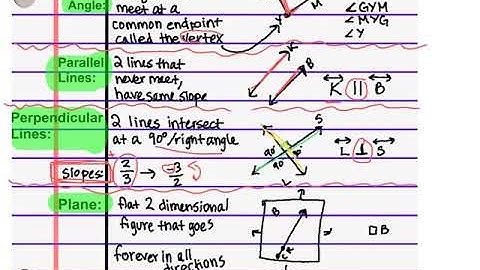 Angle:
meet at a
common endpoint
called the vertex
Y
M
∠GYM
∠MYG
∠Y
Parallel
Lines:
2 lines that
never meet,
have same slope
K
B
K || B
Perpendicular
Lines:
2 lines intersect
at a 90°/right angle
S
90°
90°
L
L ⊥ S
Slopes:
2/3 → -3/2
Plane:
flat 2 dimensional
figure that goes
forever in all
directions
B
K
□B